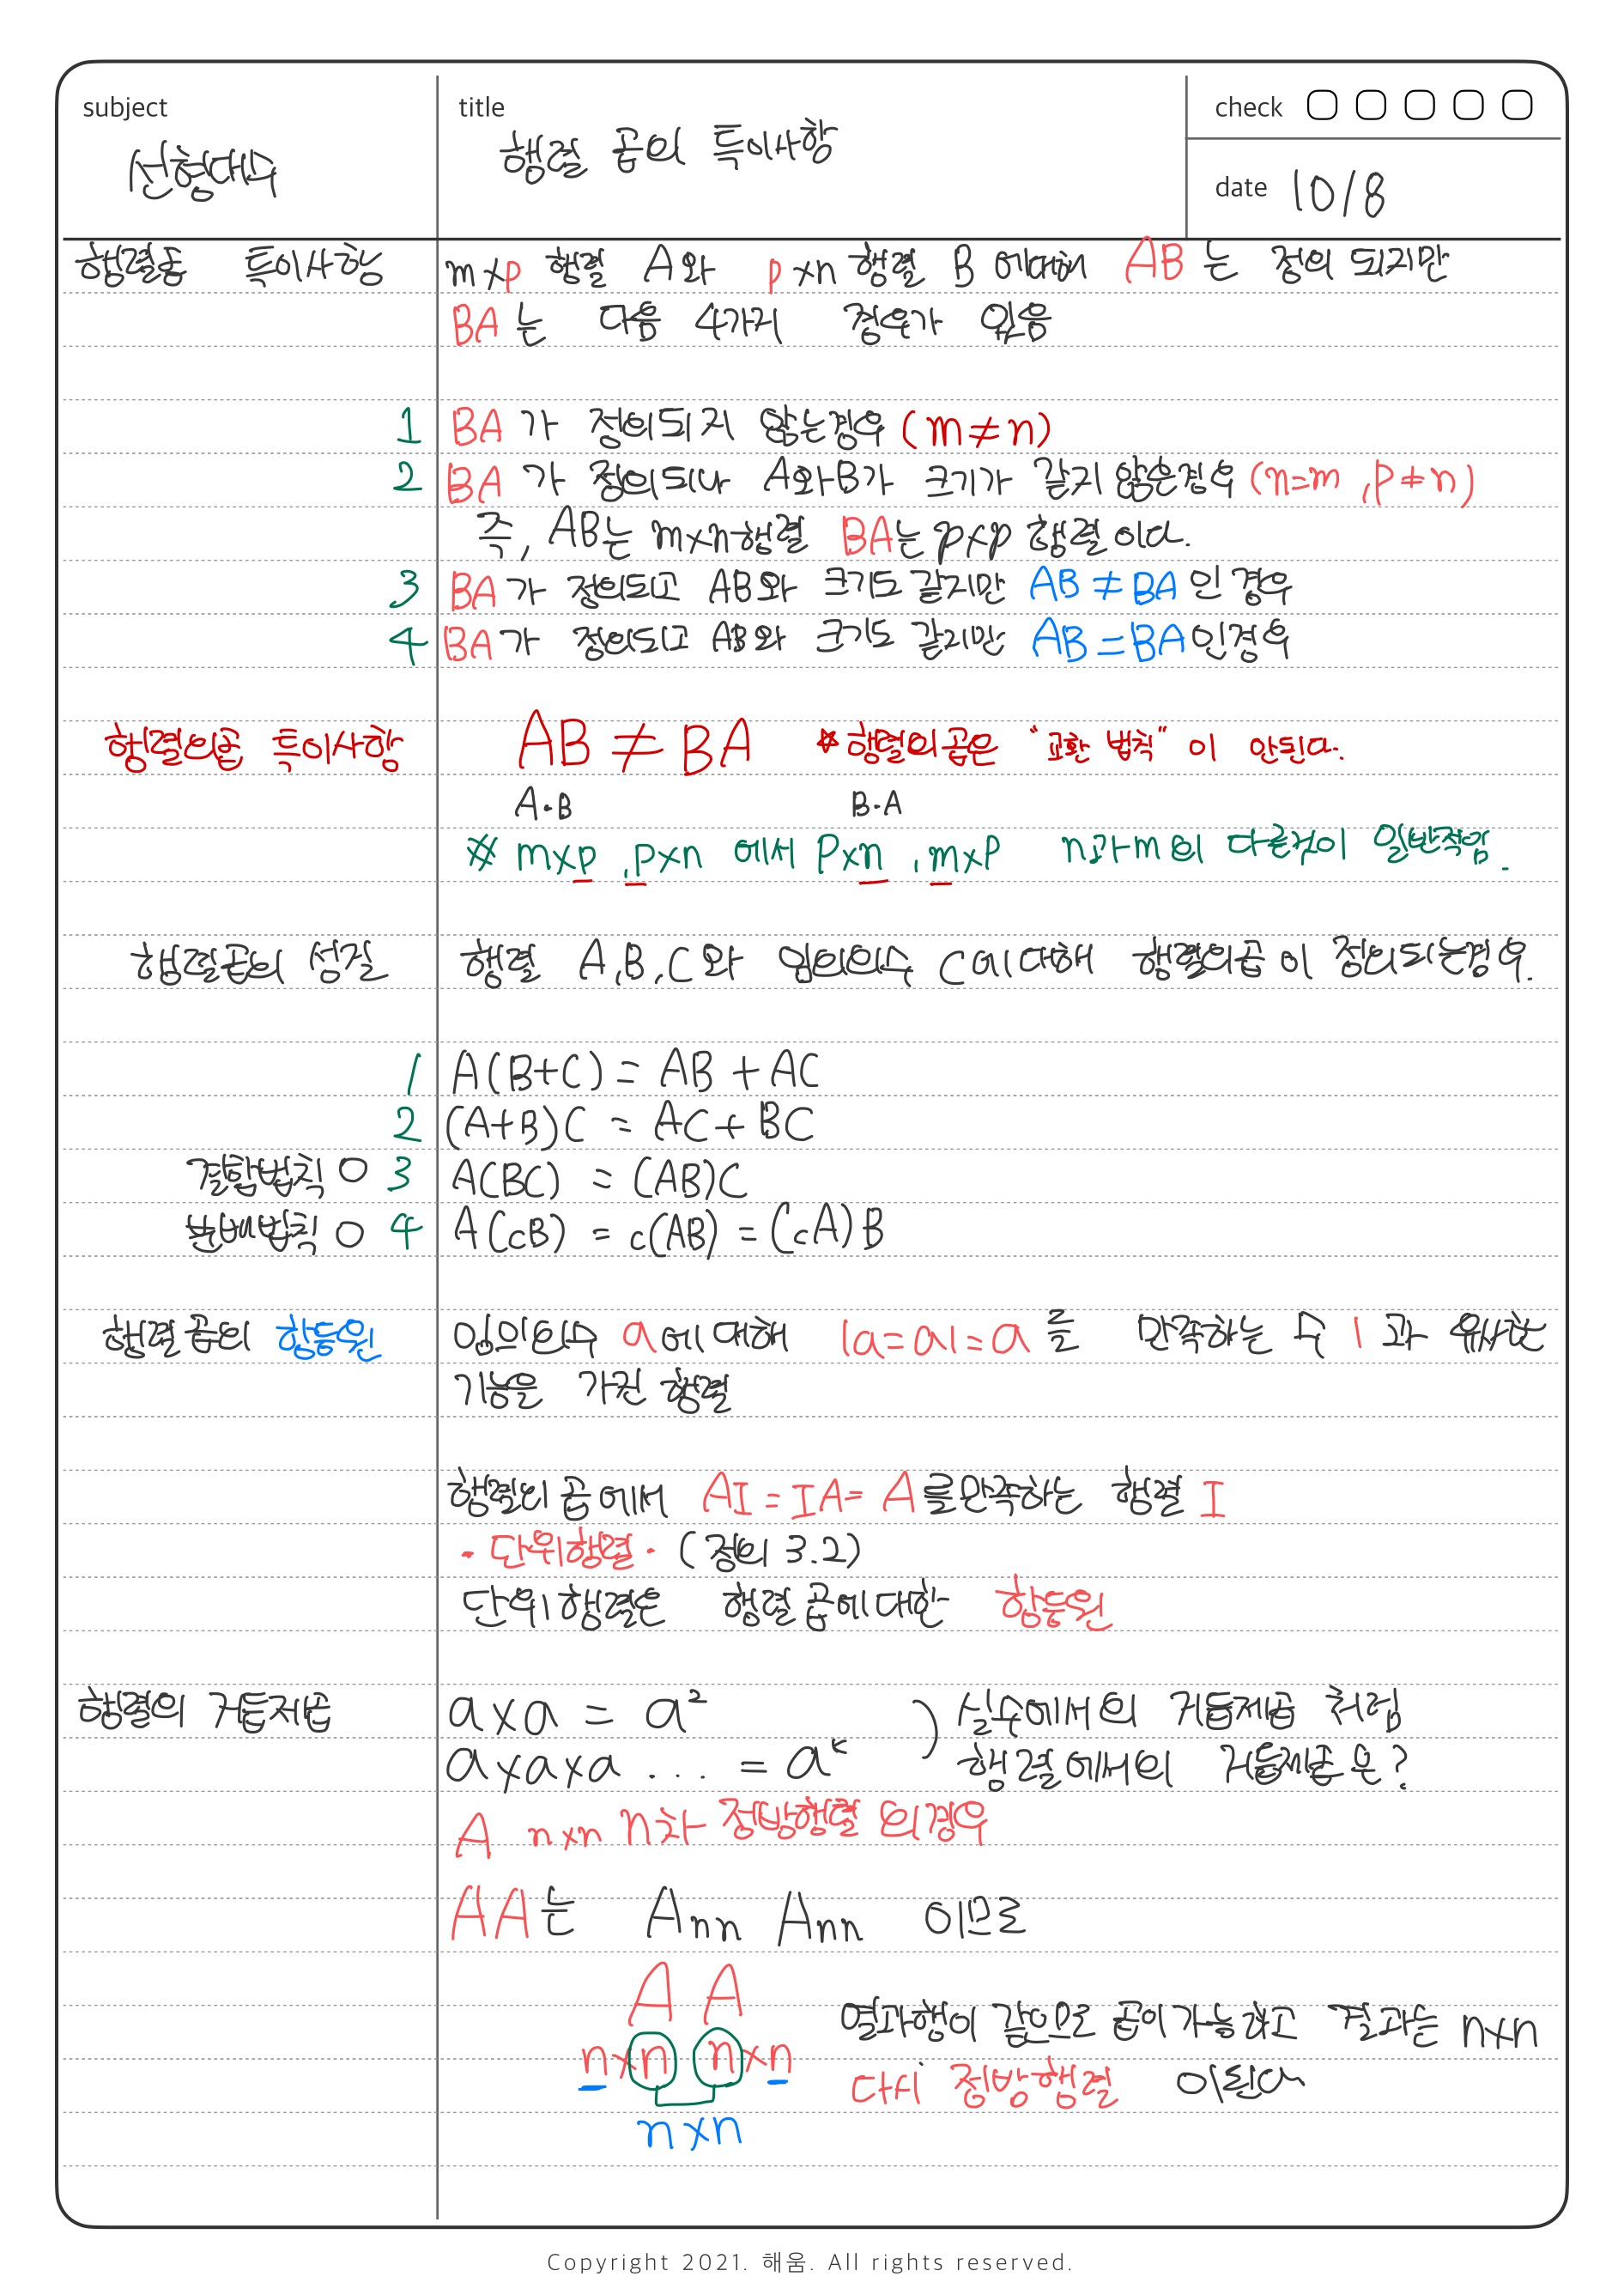 subject
title
check
선형대수
행렬 곱의 특이사항
date 10/8
행렬곱 특이사항
m×p 행렬 A와 p×n 행렬 B 에대해 AB 는 정의 되지만
BA 는 다음 4가지 경우가 있음
1 BA 가 정의되지 않는경우 (m≠n)
2 BA 가 정의되나 A와B가 크기가 같지 않은경우 (n=m, p≠n)
즉, AB는 m×n행렬 BA는 p×p 행렬 이다.
3 BA 가 정의되고 AB와 크기도 같지만 AB ≠ BA 인 경우
4 BA 가 정의되고 AB와 크기도 같지만 AB = BA 인경우
행렬의곱 특이사항
AB ≠ BA ☆행렬의곱은 "교환 법칙" 이 안된다.
A·B B·A
※ m×p, p×n 에서 p×n, m×p n과m의 다른것이 일반적임.
행렬곱의 성질
행렬 A,B,C와 임의의수 c에대해 행렬의곱이 정의되는경우.
1 A(B+C) = AB + AC
2 (A+B)C = AC + BC
결합법칙 O 3 A(BC) = (AB)C
분배법칙 O 4 A(cB) = c(AB) = (cA)B
행렬곱의 항등원
임의의수 a에대해 1a=a1=a 를 만족하는 수 1 과 유사한
기능은 가진 행렬
행렬의 곱에서 AI = IA = A를만족하는 행렬 I
· 단위행렬 · (정의 3.2)
단위행렬은 행렬 곱에대한 항등원
행렬의 거듭제곱
a×a = a²
a×a×a ... = aᵏ
) 실수에서의 거듭제곱 처럼
행렬에서의 거듭제곱은?
A n×n n차 정방행렬 의경우
AA는 Ann Ann 이므로
A A
n×n n×n
n×n
열과행이 같으므로 곱이가능하고 결과는 n×n
다시 정방행렬 이된다
Copyright 2021. 해움. All rights reserved.